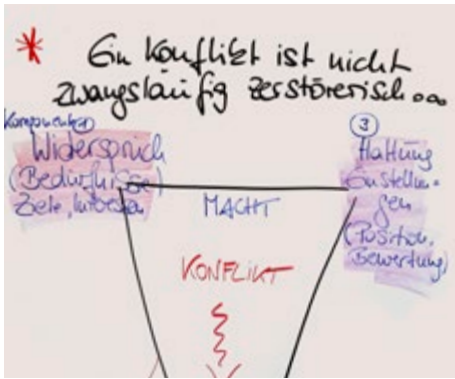 * Ein Konflikt ist nicht
zwangsläufig zerstörerisch...
Komponente ①
Widerspruch
(Bedürfnisse)
Ziele, Interessen
③
Haltung
Einstellun-
gen
(Position,
Bewertung)
MACHT
KONFLIKT